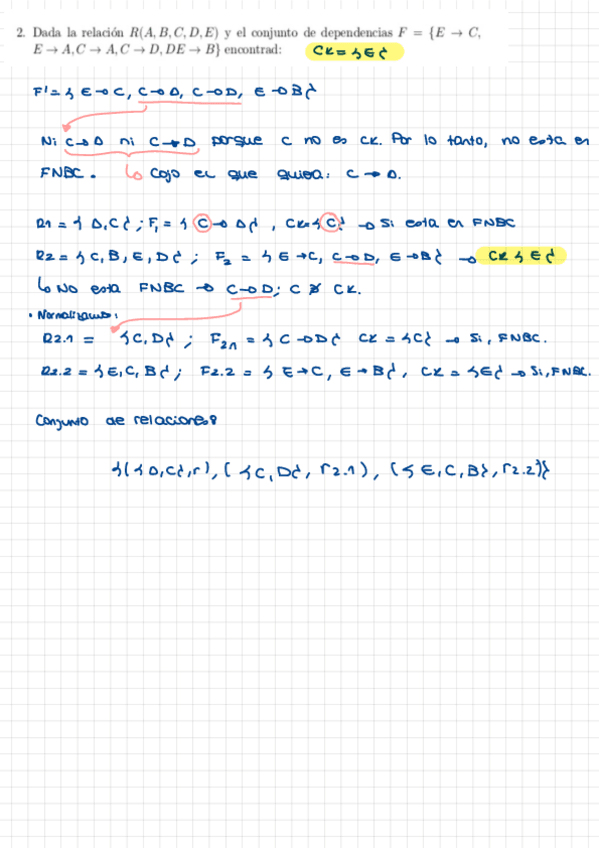 2. Dada la relación R(A, B, C, D, E) y el conjunto de dependencias F = {E → C,
E → A, C → A, C → D, DE → B} encontrad: CK = {E}
F' = { E → C, C → A, C → D, E → B }
Ni C → A ni C → D porque C no es CK. Por lo tanto, no esta en
FNBC. ↳ Cojo el que quiera: C → A.
R1 = { A, C }; F1 = { C → A }, CK = { C } → Si esta en FNBC
R2 = { C, B, E, D }; F2 = { E → C, C → D, E → B } → CK { E }
↳ No esta FNBC → C → D; C ≠ CK.
• Normalizamos:
R2.1 = { C, D }; F2.1 = { C → D } CK = { C } → Si, FNBC.
R2.2 = { E, C, B }; F2.2 = { E → C, E → B }, CK = { E } → Si, FNBC.
Conjunto de relaciones:
{ ( { A, C }, r ), ( { C, D }, r2.1 ), ( { E, C, B }, r2.2 ) }